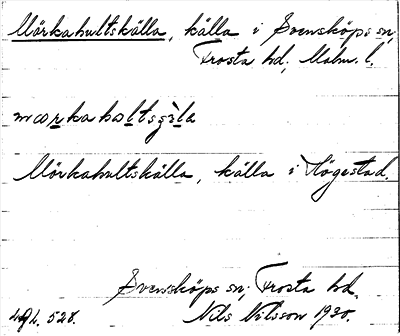 Mörkahultskälla, källa i Svensköps sn,
Frosta hd, Malm. l.
Mörkahultskälla, källa i Högestad.
Svensköps sn, Frosta hd.
Nils Nilsson 1920.
528.